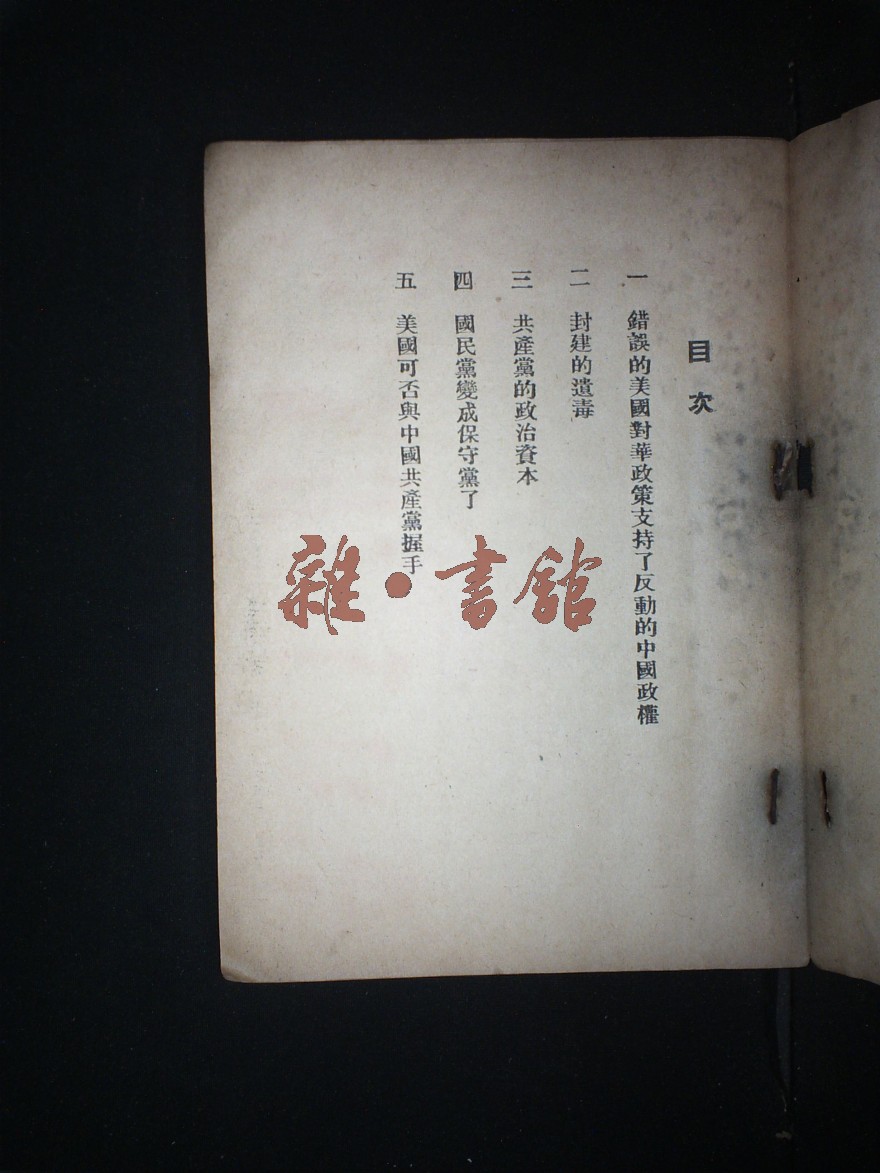 目次
一 錯誤的美國對華政策支持了反動的中國政權
二 封建的遺毒
三 共產黨的政治資本
四 國民黨變成保守黨了
五 美國可否與中國共產黨握手
雜·書館